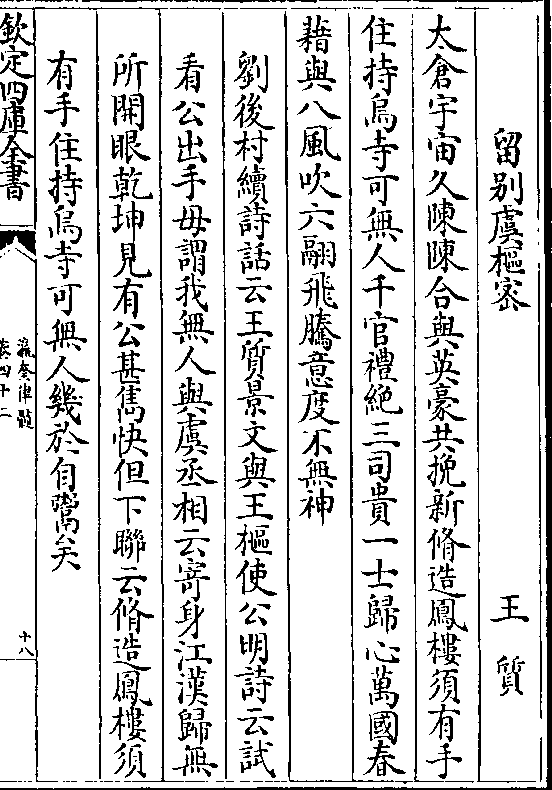 留别虞樞宻
王質
太倉宇宙久陳陳合與英豪共挽新脩造鳳樓須有手
住持烏寺可無人千官禮絶三司貴一士歸心萬國春
藉與八風吹六翮飛騰意度不無神
劉後村續詩話云王質景文與王樞使公明詩云試
看公出手毋謂我無人與虞丞相云寄身江漢歸無
所開眼乾坤見有公甚雋快但下聯云脩造鳳樓須
有手住持烏寺可無人幾於自鬻矣
欽定四庫全書
瀛奎律髓
卷四十二
十八